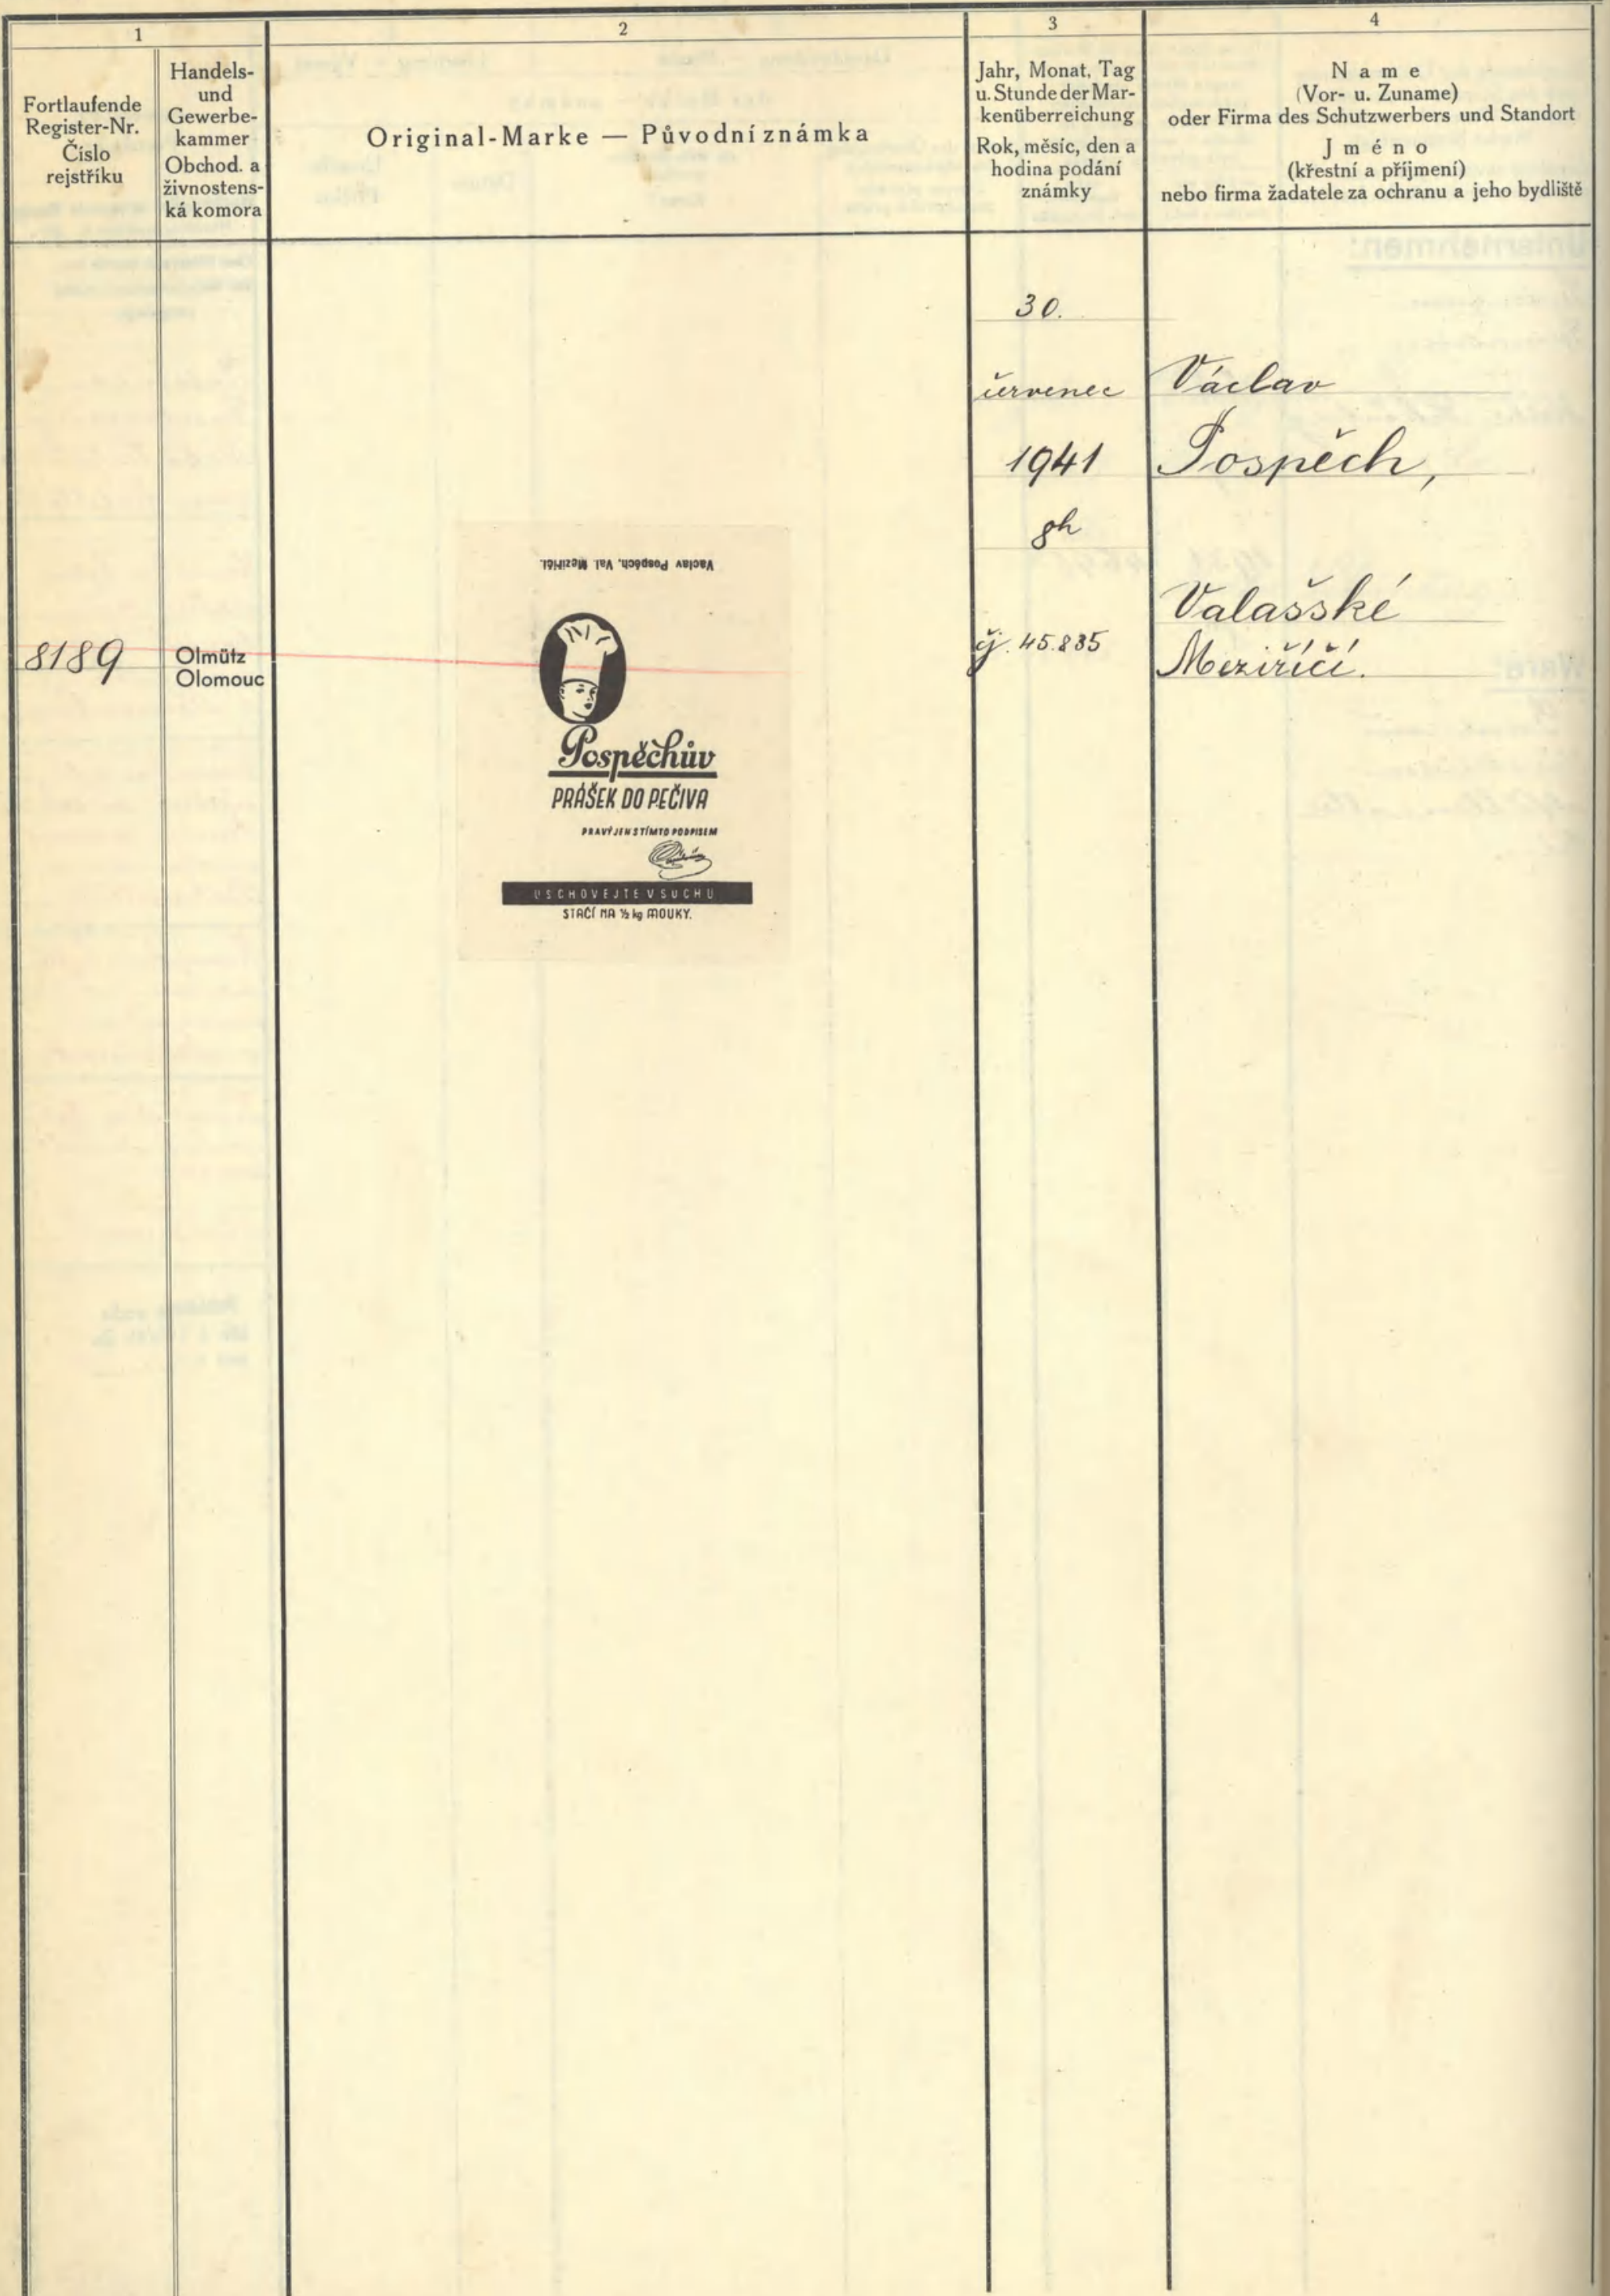 1
2
3
4
Fortlaufende
Register-Nr.
Číslo
rejstříku
Handels-
und
Gewerbe-
kammer
Obchod. a
živnostens-
ká komora
Original-Marke — Původní známka
Jahr, Monat, Tag
u. Stunde der Mar-
kenüberreichung
Rok, měsíc, den a
hodina podání
známky
Name
(Vor- u. Zuname)
oder Firma des Schutzwerbers und Standort
Jméno
(křestní a příjmení)
nebo firma žadatele za ochranu a jeho bydliště
8189
Olmütz
Olomouc
Václav Pospěch, Val. Meziříčí.
Pospěchův
PRÁŠEK DO PEČIVA
PRAVÝ JEN S TÍMTO PODPISEM
USCHOVEJTE V SUCHU
STAČÍ NA ½ kg MOUKY.
30.
červenec
1941
8h
čj. 45.835
Václav
Pospěch,
Valašské
Meziříčí.